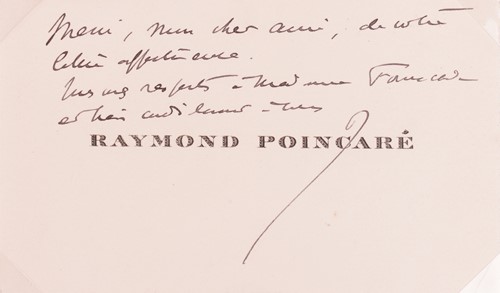 Merci, mon cher ami, de votre
lettre affectueuse.
Mes respects à Madame
et bien cordialement à vous
RAYMOND POINCARÉ